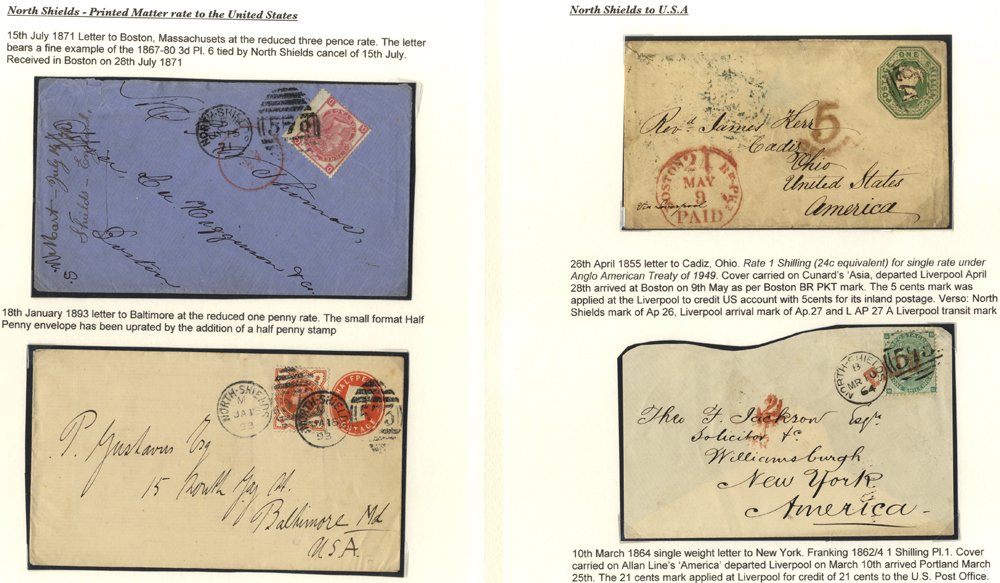 North Shields - Printed Matter rate to the United States
15th July 1871 Letter to Boston, Massachusets at the reduced three pence rate. The letter
bears a fine example of the 1867-80 3d Pl. 6 tied by North Shields cancel of 15th July.
Received in Boston on 28th July 1871
NORTH-SHIELDS
71
Shields
Thomas
Boston
18th January 1893 letter to Baltimore at the reduced one penny rate. The small format Half
Penny envelope has been uprated by the addition of a half penny stamp
NORTH-SHIELDS
M
JA 18
93
NORTH-SHIELDS
JA 18
93
HALFPENNY
POSTAGE
P. Gustavus Esq
15 South Gay St.
Baltimore Md
U.S.A.
North Shields to U.S.A
POSTAGE ONE SHILLING
5
Revd James Kerr
Cadiz
Ohio
United States
America
via Liverpool
BOSTON BR. PKT.
24
MAY
9
PAID
26th April 1855 letter to Cadiz, Ohio. Rate 1 Shilling (24c equivalent) for single rate under
Anglo American Treaty of 1949. Cover carried on Cunard's 'Asia, departed Liverpool April
28th arrived at Boston on 9th May as per Boston BR PKT mark. The 5 cents mark was
applied at the Liverpool to credit US account with 5cents for its inland postage. Verso: North
Shields mark of Ap 26, Liverpool arrival mark of Ap.27 and L AP 27 A Liverpool transit mark
NORTH-SHIELDS
B
MR
64
Theo F. Jackson Esqr.
Solicitor &c
Williamsburgh
New York
America
10th March 1864 single weight letter to New York. Franking 1862/4 1 Shilling Pl.1. Cover
carried on Allan Line's 'America' departed Liverpool on March 10th arrived Portland March
25th. The 21 cents mark applied at Liverpool for credit of 21 cents to the U.S. Post Office.